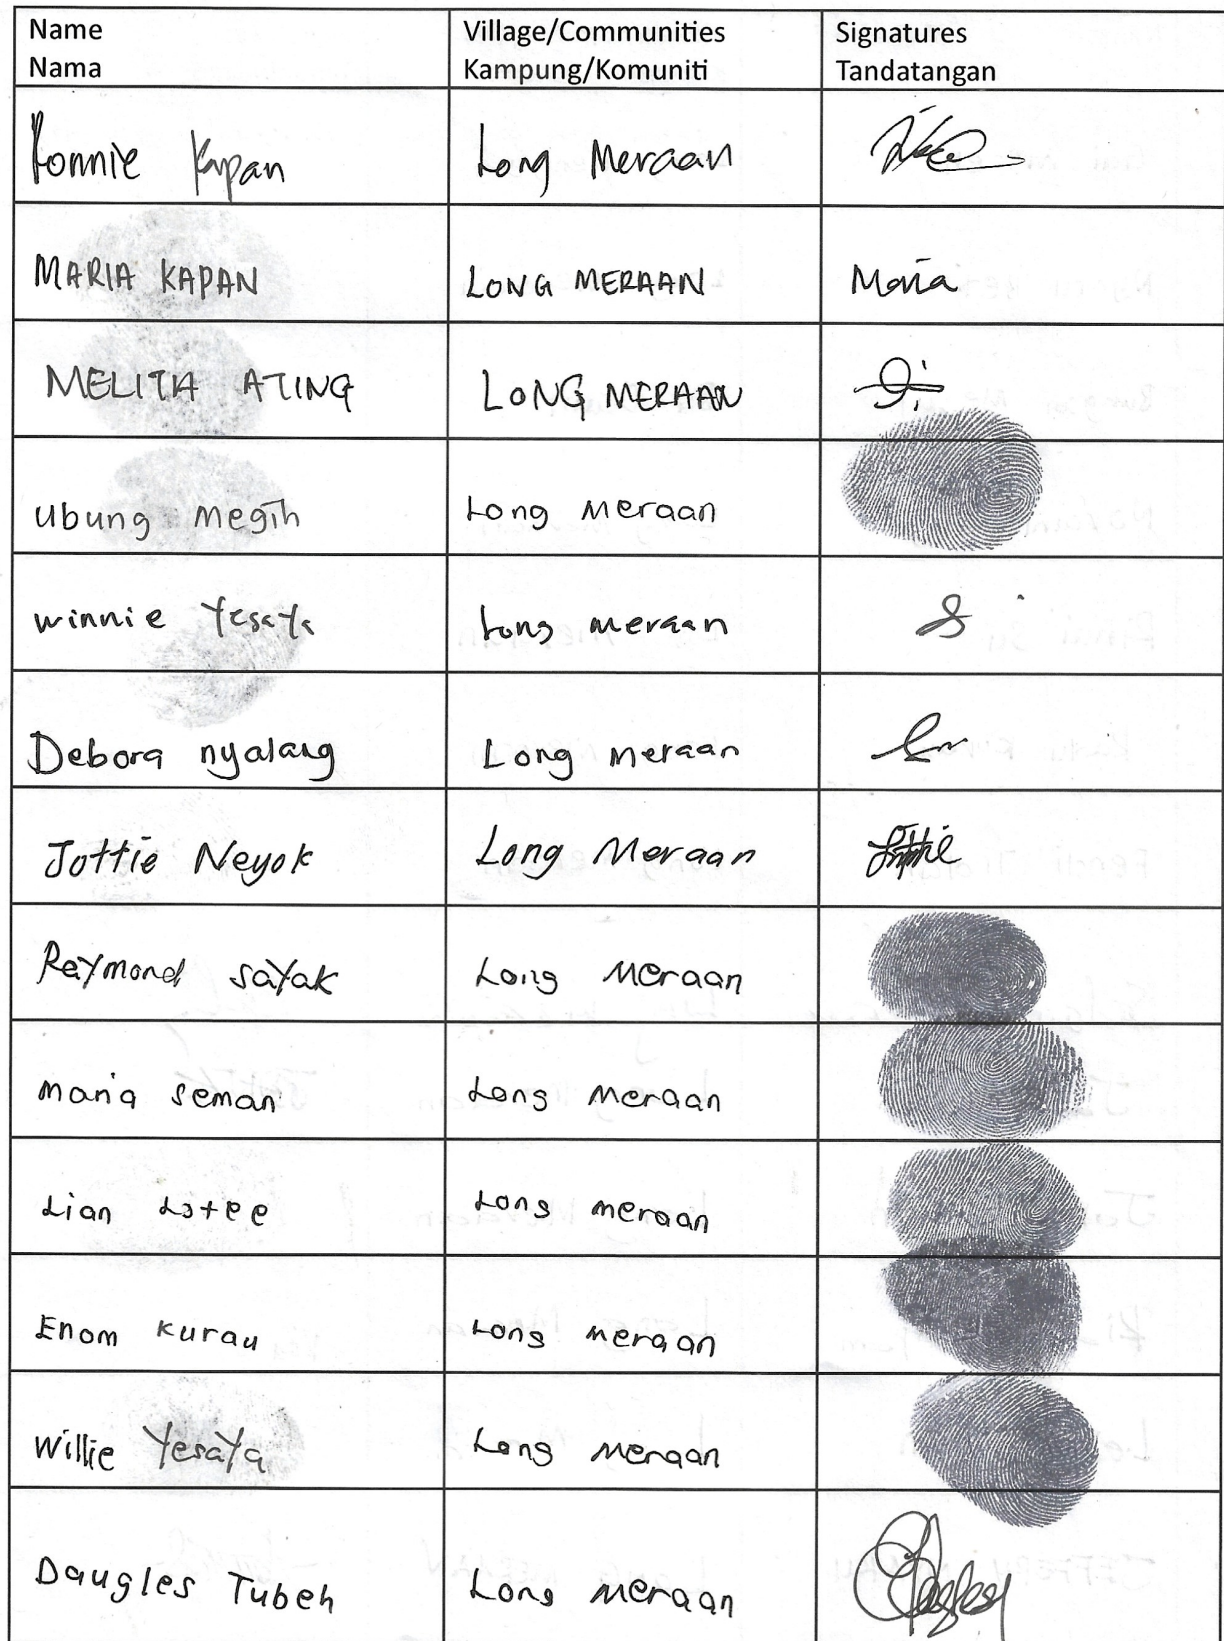 Name Village/Communities Signatures
Nama Kampung/Komuniti Tandatangan
Ronnie Kapan Long Meraan
MARIA KAPAN LONG MERAAN Maria
MELITA ATING LONG MERAAN
Ubung Megih Long Meraan
Winnie Yesaya Long meraan
Debora nyalang Long Meraan
Jottie Neyok Long Meraan Jottie
Raymond saYak Long Meraan
Maria Seman Long Meraan
Lian Long meraan
Enom Kurau Long Meraan
Willie YesaYa Long Meraan
Daugles Tubeh Long Meraan